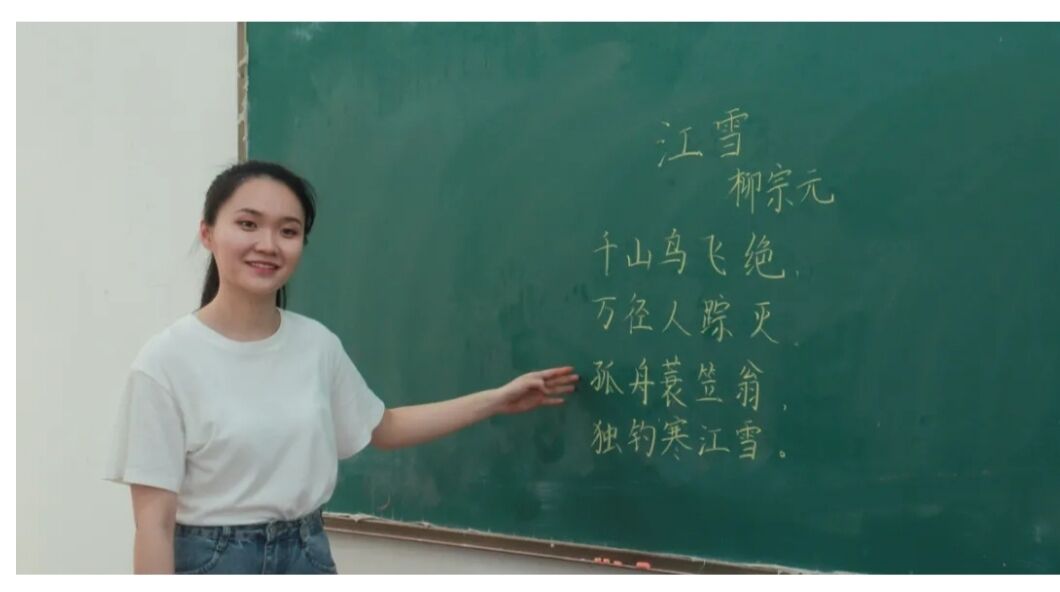 江雪
柳宗元
千山鸟飞绝,
万径人踪灭.
孤舟蓑笠翁,
独钓寒江雪。